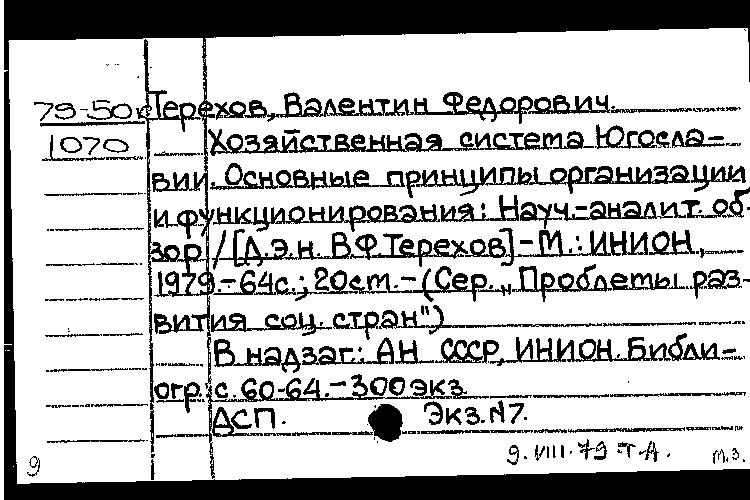 79-50с Терехов, Валентин Федорович.
1070 Хозяйственная система Югосла-
вии. Основные принципы организации
и функционирования: Науч.-аналит. об-
зор / [Д.э.н. В.Ф.Терехов] - М.: ИНИОН,
1979.-64с.; 20ст. - (Сер. „Проблемы раз-
вития соц. стран")
В надзаг.: АН СССР, ИНИОН. Библи-
огр. с. 60-64. - 300экз.
ДСП. Экз.N7.
9.VIII-79 Т-А. м.з.
9